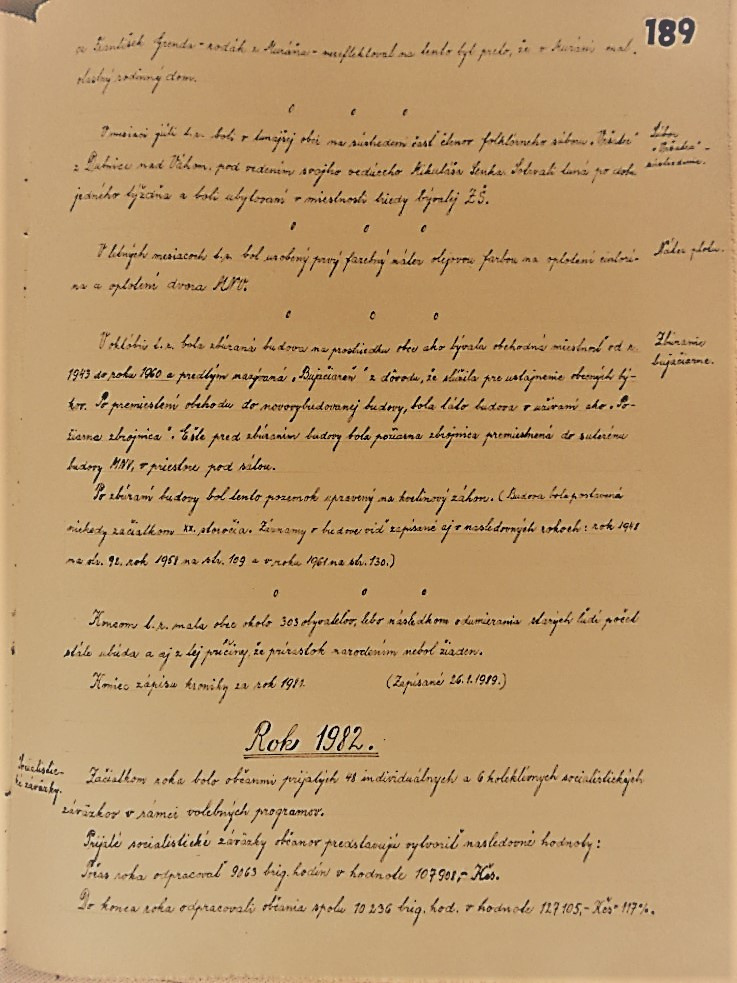 189
František Grenda - rodák z Muráňa - nereflektoval na tento byt preto, že v Muráni mal
vlastný rodinný dom.
o o o
V mesiaci júli t.r. boli v tunajšej obci na sústredení časť členov folklórneho súboru „Vršatec"
z Dubnice nad Váhom, pod vedením svojho vedúceho Mikuláša Senka. Zotrvali tuná po dobu
jedného týždňa a boli ubytovaní v miestnosti triedy bývalej ZŠ.
Súbor
sústredenie.
o o o
V letných mesiacoch t.r. bol urobený prvý farebný náter olejovou farbou na oplotení cintorí-
na a oplotení dvora MNV.
Náter plotu.
o o o
V októbri t.r. bola zbúraná budova na prostriedku obce ako bývala obchodná miestnosť od r.
1943 do roku 1960 a predtým nazývaná „Bujačiareň" z dôvodu, že slúžila pre ustajnenie obecných bý-
kov. Po premiestení obchodu do novovybudovanej budovy, bola táto budova v užívaní ako „Po-
žiarna zbrojnica". Ešte pred zbúraním budovy bola požiarna zbrojnica premiestnená do suterénu
budovy MNV, v priestore pod sálou.
Zbúranie
bujačiarne.
Po zbúraní budovy bol tento pozemok upravený na kvetinový záhon. (Budova bola postavená
niekedy začiatkom XX. storočia. Záznamy o budove viď zapísané aj v nasledovných rokoch: rok 1948
na str. 92. rok 1958 na str. 109 a v roku 1961 na str. 130.)
o o o
Koncom t.r. mala obec okolo 303 obyvateľov, lebo následkom odumierania starých ľudí počet
stále ubúda a aj z tej príčiny, že prírastok narodením nebol žiaden.
Koniec zápisu kroniky za rok 1981. (Zapísané 26.1.1989.)
Rok 1982.
Socialistic-
ké záväzky.
Začiatkom roka bolo občanmi prijatých 48 individuálnych a 6 kolektívnych socialistických
záväzkov v rámci volebných programov.
Prijaté socialistické záväzky občanov predstavujú vytvoriť nasledovné hodnoty:
Počas roka odpracovať 9063 brig. hodín v hodnote 107908,- Kčs.
Do konca roka odpracovali občania spolu 10236 brig. hod. v hodnote 127105,- Kčs 117%.